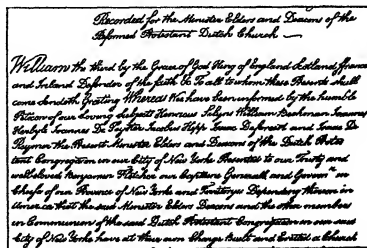 Recorded for the Minister Elders and Deacons of the
Reformed Protestant Dutch Church —
William the third by the Grace of God King of England Scotland France
and Ireland Defender of the faith &c To all to whom these Presents shall
come Sendeth Greeting Whereas We have been informed by the humble
Peticon of our Loving Subjects Henricus Selyns William Beekman Joannes
Kerbyle Joannes De Peyster Jacobus Kipp Isaac De forest and Isaac De
Reymer the Present Minister Elders and Deacons of the Dutch Protes
tant Congregation in our City of New Yorke Presented to our Trusty and
welbeloved Benjamin Fletcher our Captaine Generall and Govern in
Cheife of our Province of New Yorke and Territorys Depending thereon in
America that the said Minister Elders Deacons and the other members
in Communion of the said Dutch Protestant Congregation in our said
City of New Yorke have at their own Charge Built and Erected a Church